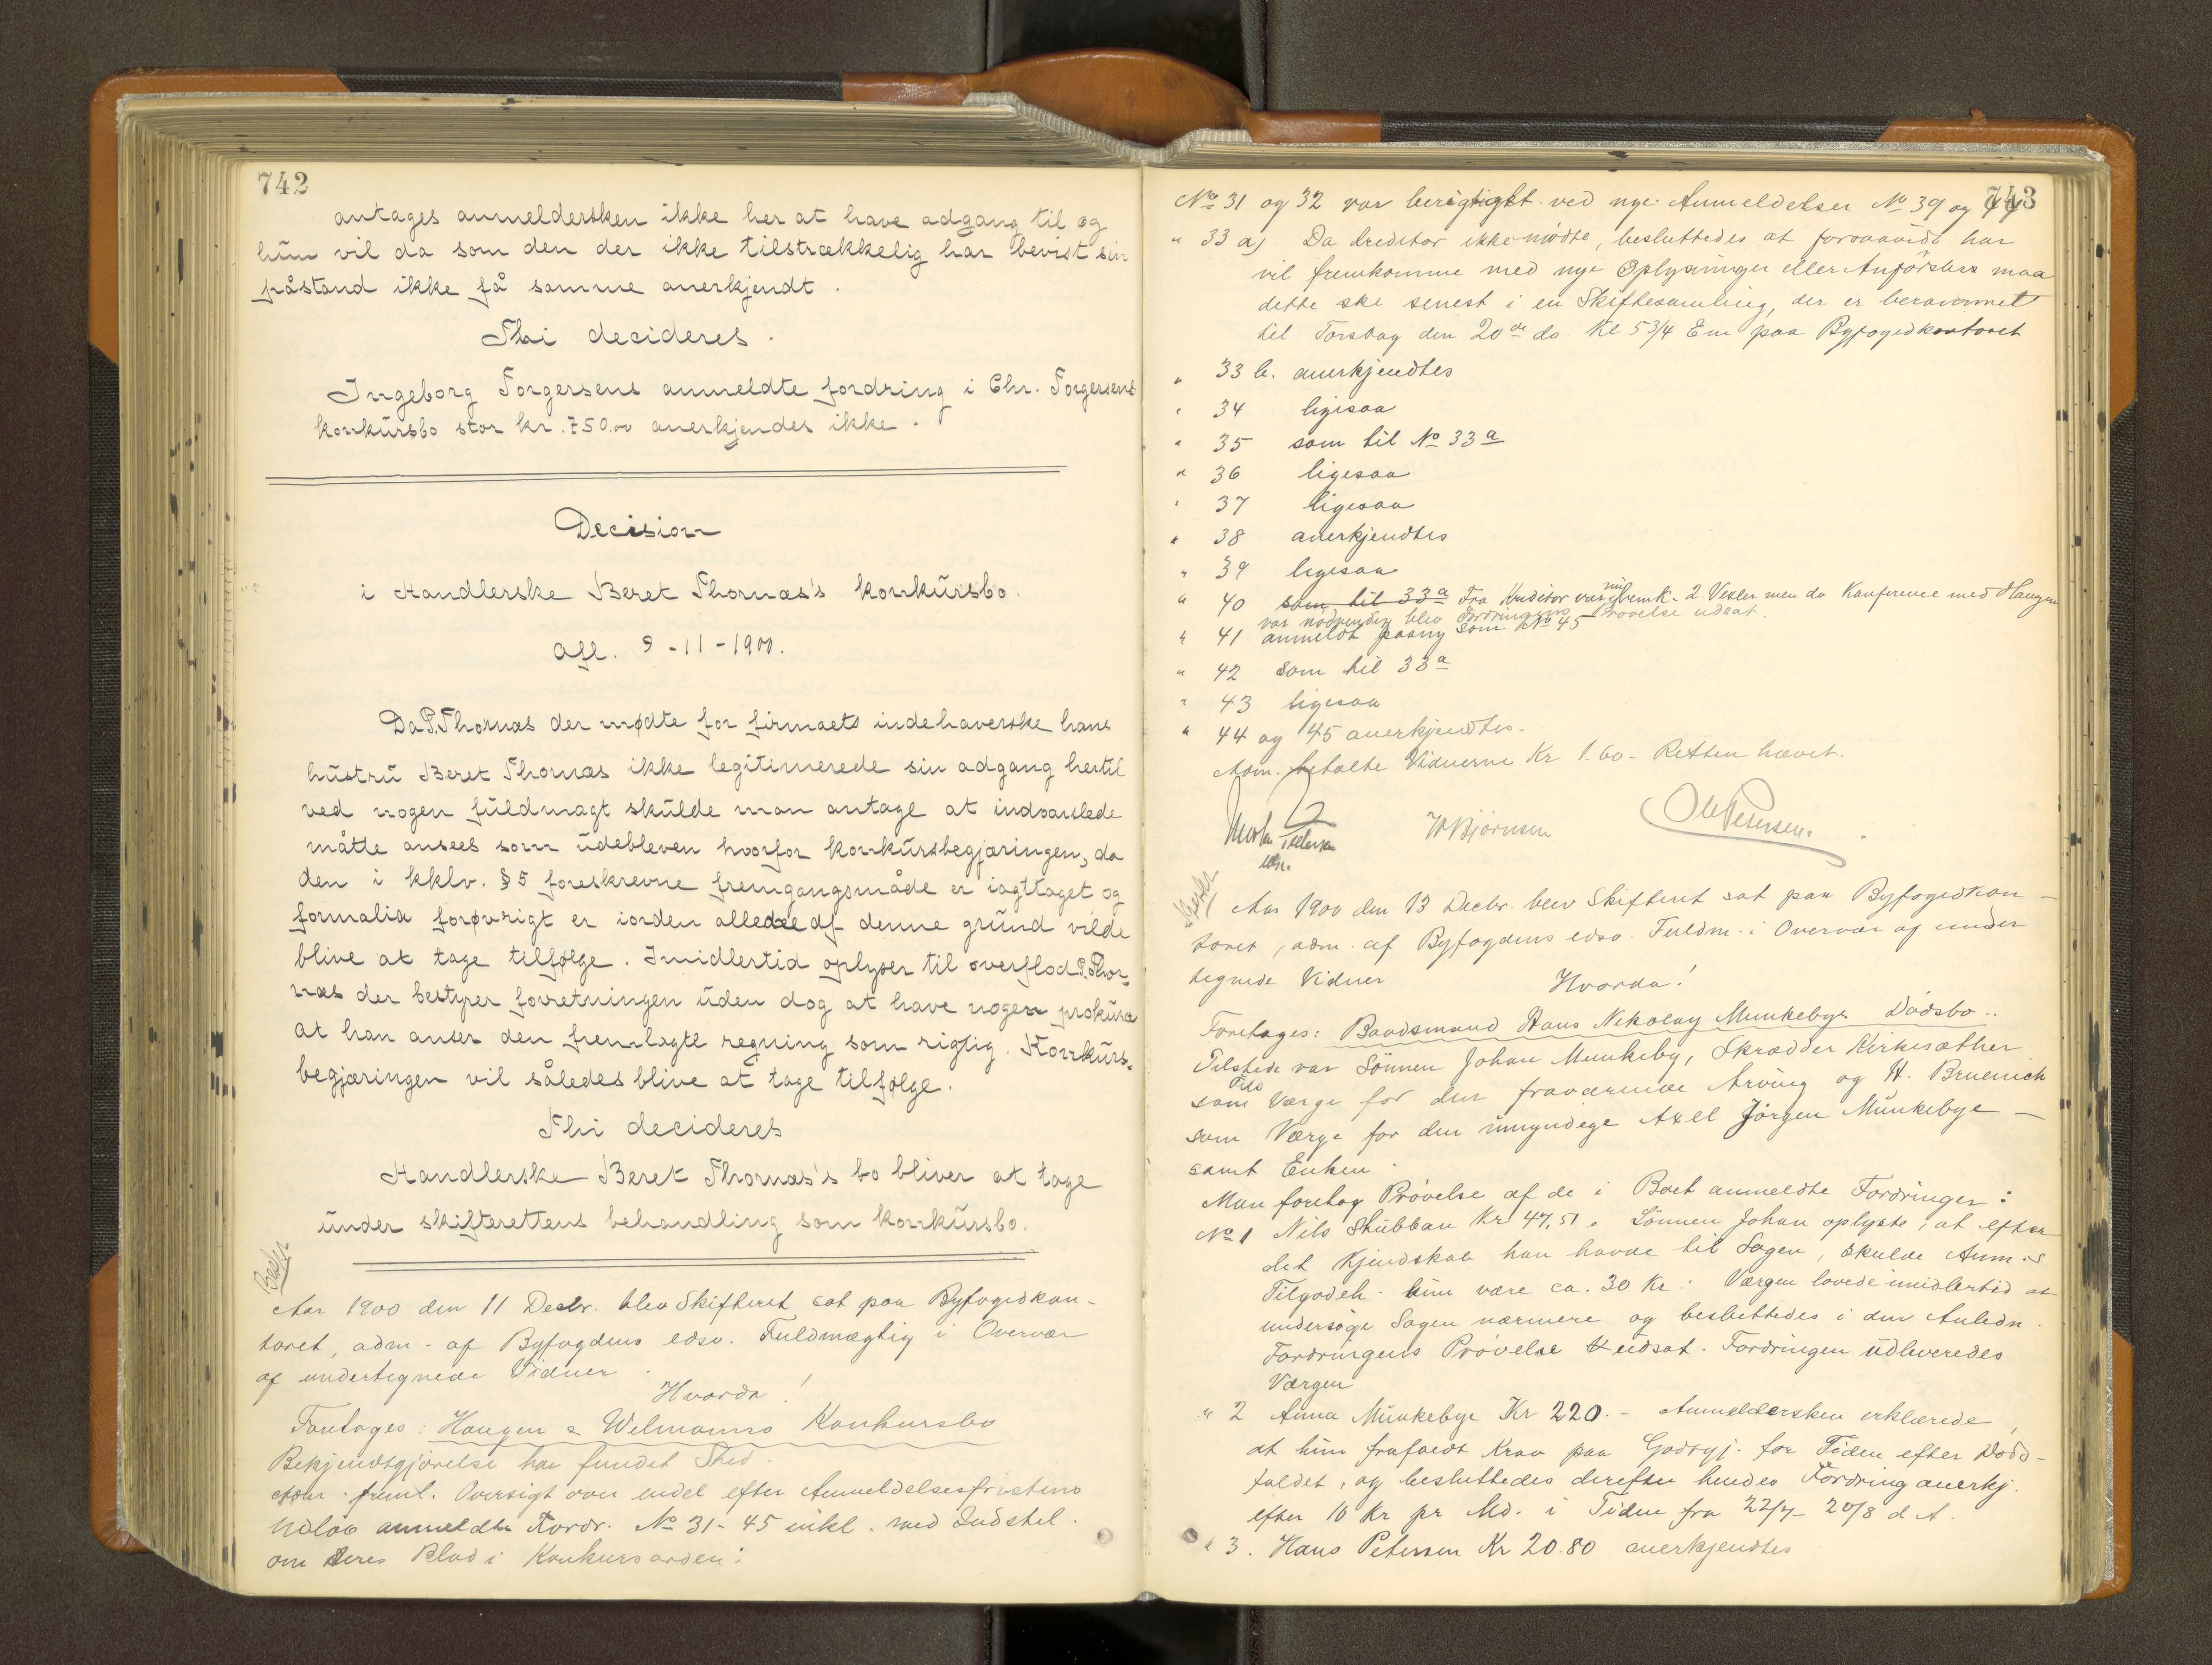 742
antages anmeldersken ikke her at have adgang til og
hun vil da som den der ikke tilstrækkelig har bevist sin
påstand ikke få samme anerkjendt.
Thi decideres.
Ingeborg Torgersens anmeldte fordring i Chr. Torgersens
konkursbo stor kr. 750.00 anerkjendes ikke.
Decision
i Handlerske Beret Thornæs's konkursbo.
afl. 9-11-1900.
Da P. Thornæs der mødte for firmaets indehaverske hans
hustru Beret Thornæs ikke legitimerede sin adgang hertil
ved nogen fuldmagt skulde man antage at indvarslede
måtte ansees som udebleven hvorfor konkursbegjæringen, da
den i kklv. §5 foreskrevne fremgangsmåde er iagttaget og
formalia forøvrigt er iorden allerede af denne grund vilde
blive at tage tilfølge. Imidlertid oplyser til overflod P. Thor-
næs der bestyrer forretningen uden dog at have nogen prokura
at han anser den fremlagte regning som rigtig. Konkurs-
begjæringen vil således blive at tage tilfølge.
Thi decideres
Handlerske Beret Thornæs's bo bliver at tage
under skifterettens behandling som konkursbo.
Aar 1900 den 11 Decbr. blev Skifteret sat paa Byfogedkon-
toret, adm. af Byfogdens edsv. Fuldmægtig i Overvær
af undertegnede Vidner.
Hvorda!
Foretages: Haugen & Welmanns Konkursbo
Bekjendtgjørelse har fundet Sted.
Adm. freml. Oversigt over endel efter Anmeldelsesfristens
Udløb anmeldte Fordr. No 31-45 inkl. med Indstil.
om deres Plads i Konkursorden:
743
No 31 og 32 var berigtigt ved nye Anmeldelser No 39 og 44
" 33 a) Da Kreditor ikke mødte, besluttedes at forsaavidt han
vil fremkomme med nye Oplysninger eller Anførsler maa
dette ske senest i en Skiftesamling, der er berammet
til Torsdag den 20de ds. Kl 5 3/4 Em paa Byfogedkontoret
" 33 b. anerkjendtes
" 34 ligesaa
" 35 som til No 33a
" 36 ligesaa
" 37 ligesaa
" 38 anerkjendtes
" 39 ligesaa
" 40 som til 33a Fra Kreditor var nu fremk. 2 Vexler men da Konference med Haugen
var nødvendig blev Fordringens Prøvelse udsat.
" 41 anmeldt paany som No 45
" 42 som til 33a
" 43 ligesaa
" 44 og 45 anerkjendtes.
Adm. betalte Vidnerne Kr 1.60 - Retten hævet.
Bjørnsen
Ole Petersen.
Aar 1900 den 13 Decbr. blev Skifteret sat paa Byfogedkon-
toret, adm. af Byfogdens edsv. Fuldm. i Overvær af under
tegnede Vidner
Hvorda!
Foretages: Baadsmand Hans Nikolay Munkebys Dødsbo.
Tilstede var Sønnen Johan Munkeby, Skrædder Kirkesæther
som Værge for den fraværende Arving og H. Bruenich
som Værge for den umyndige Axel Jørgen Munkebye -
samt Enken.
Man foretog Prøvelse af de i Boet anmeldte Fordringer:
No 1 Nils Stubban Kr 47,51. Sønnen Johan oplyste, at efter
det Kjendskab han havde til Sagen, skulde Anm.s
Tilgodeh. kun være ca. 30 Kr. Værgen lovede imidlertid at
undersøge Sagen nærmere og besluttedes i den Anledn.
Fordringens Prøvelse udsat. Fordringen udleveredes
Værgen
" 2 Anna Munkebye Kr 220.- Anmeldersken erklærede,
at hun frafaldt Krav paa Godtgj. for Tiden efter Døds-
faldet, og besluttedes derefter hendes Fordring anerkj.
efter 10 Kr pr Md. i Tiden fra 22/7 - 20/8 d. A.
" 3. Hans Petersen Kr 20.80 anerkjendtes